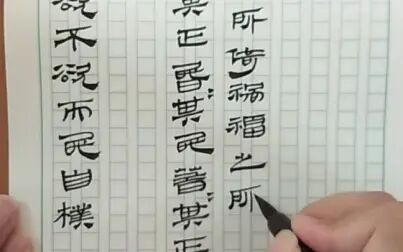 所倚禍福之所
其正昏〻其民〻其正
欲不欲而民自樸